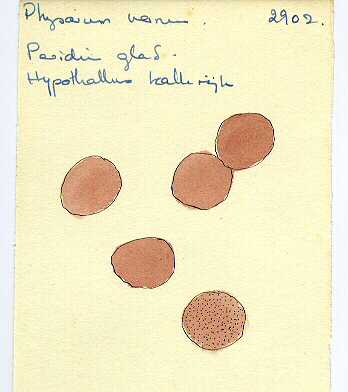 Physarum vernum. 2902.
Peridie glad.
Hypothallus kalkrijk